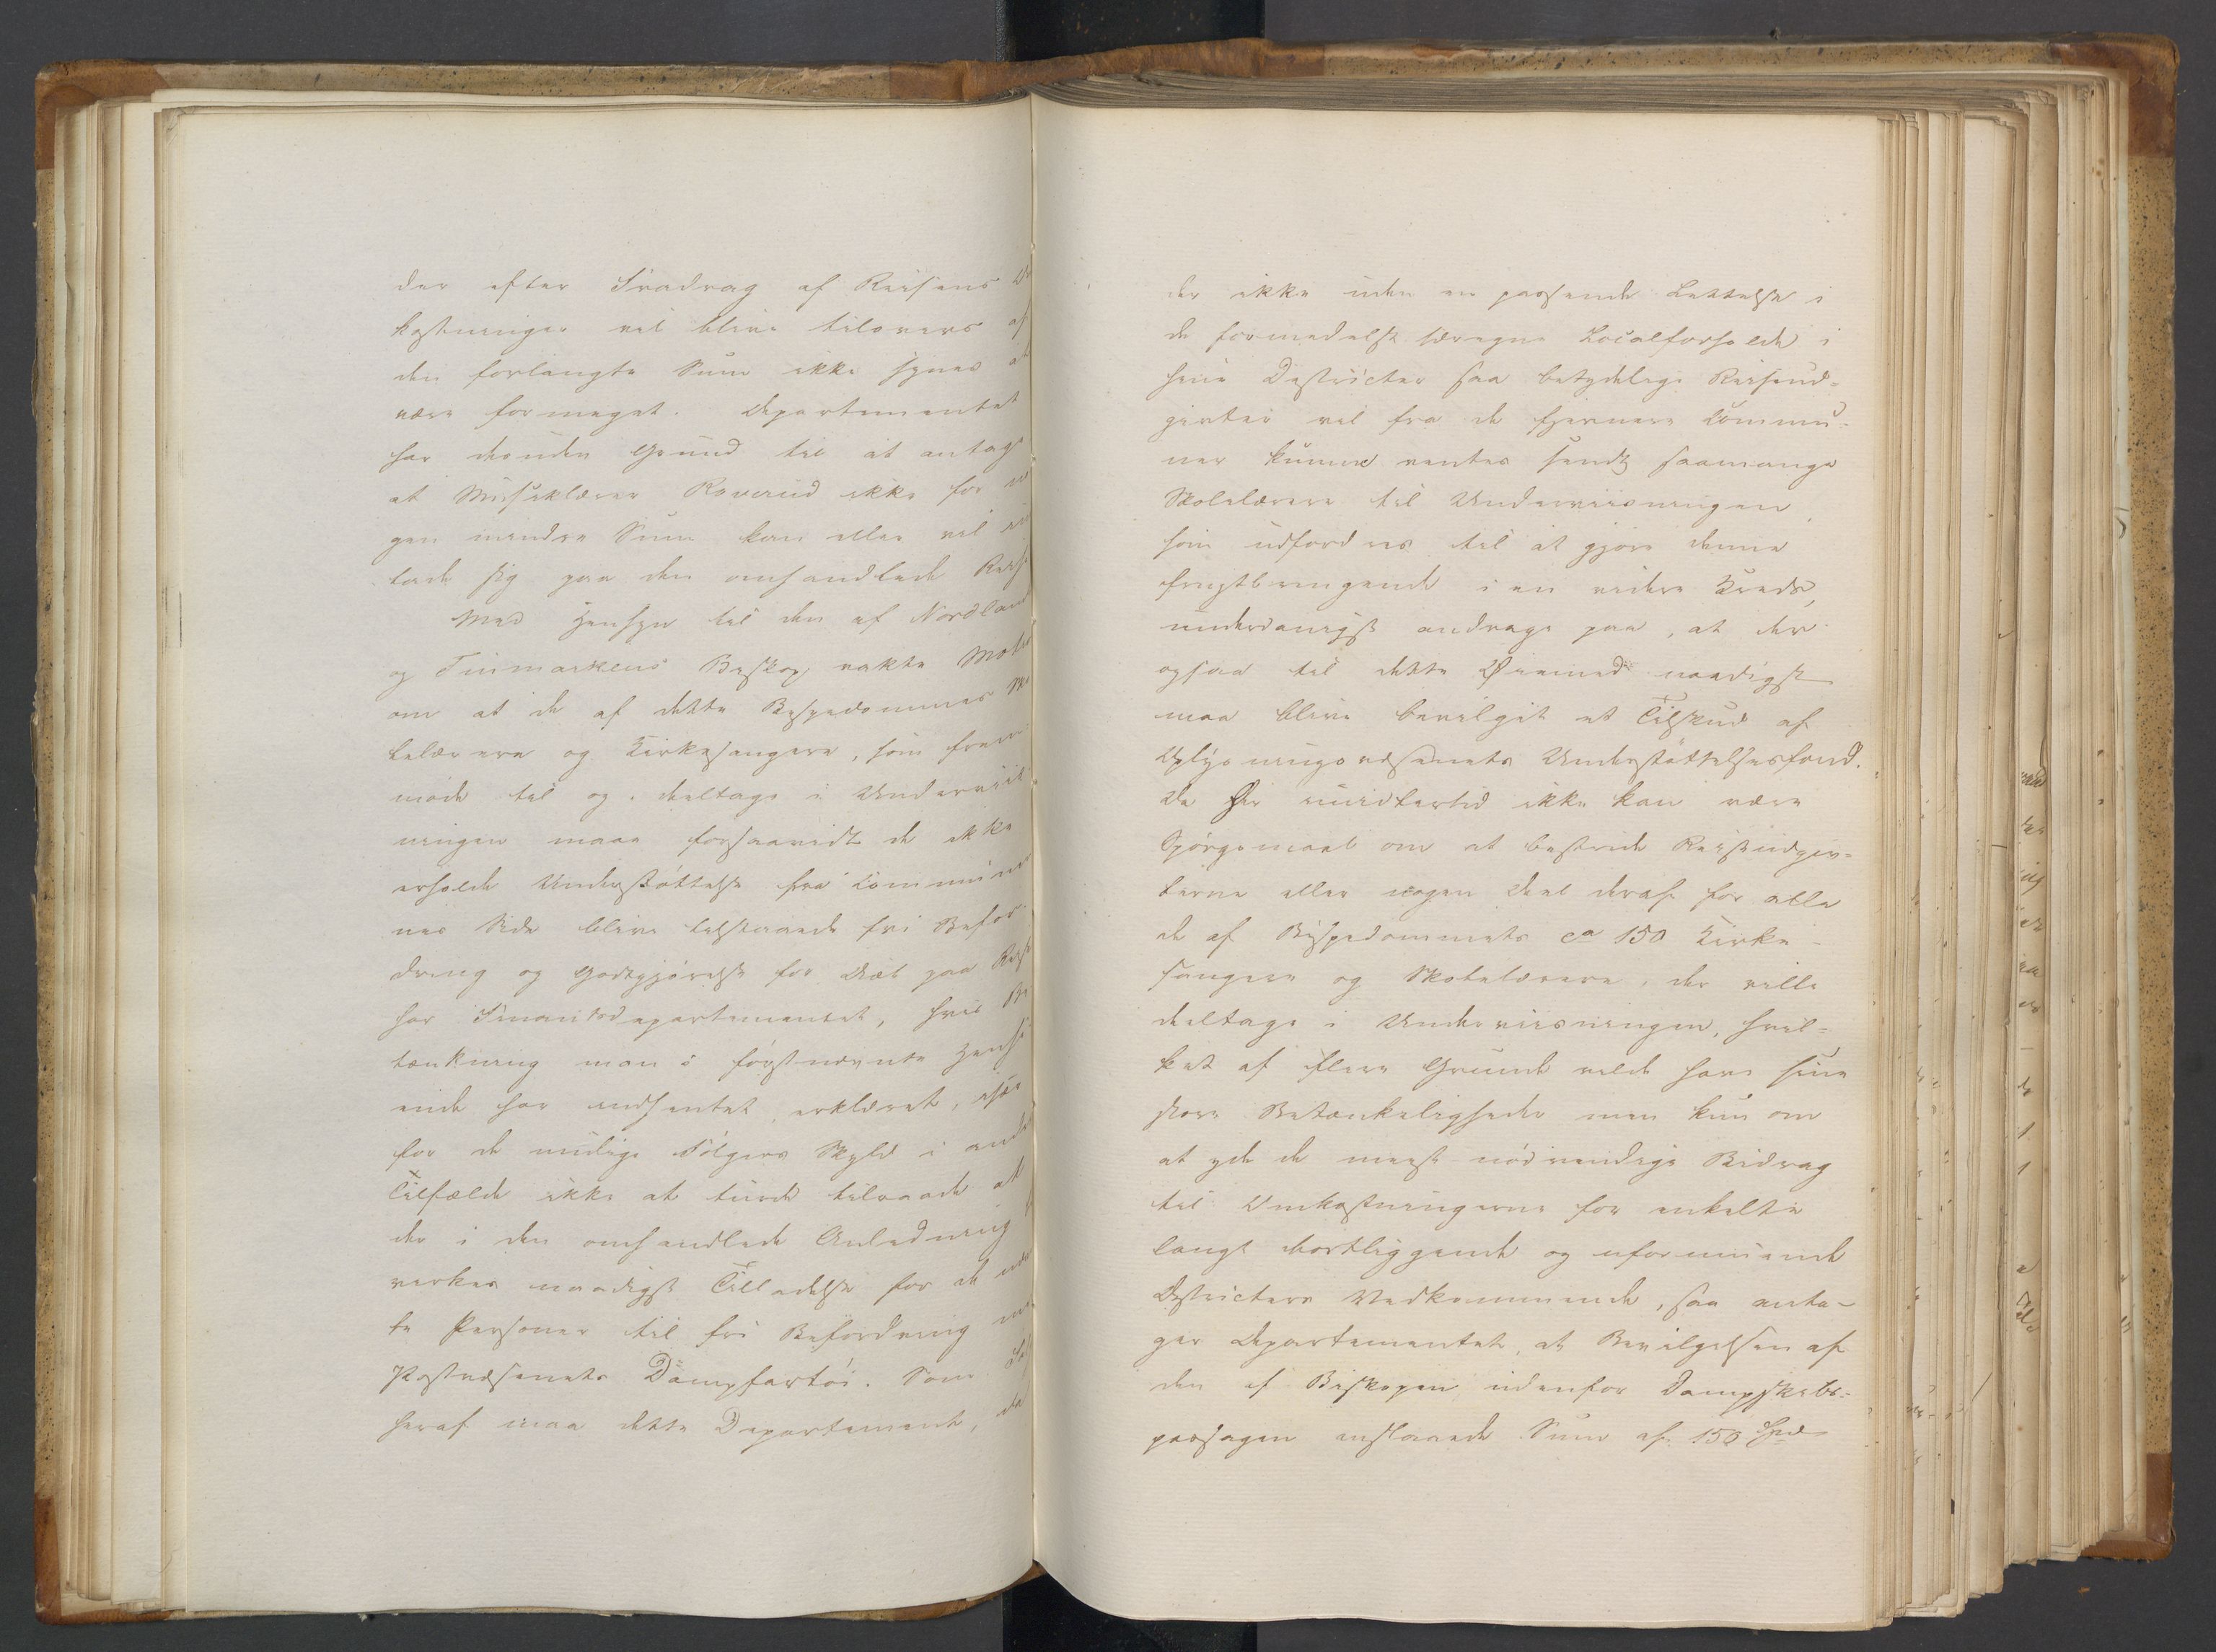 der efter Fradrag af Reisens
kostninger vil blive tilovers af
den forlangte Sum ikke synes at
være formeget. Departementet
har desuden Grund til at antage
at Musiklærer Roverud ikke for no
gen mindre Sum kan eller vil ind
lade sig paa den omhandlede Reise
Med Hensyn til den af Nordland
og Finmarkens Biskop vakte Motion
om at de af dette Bispedømmes Sko
lelærere og Kirkesangere, som frem
møde til og deltage i Underviis
ningen maae forsaavidt de ikke
erholde Understøttelse fra Commüner
nes Side blive tilstaaede fri Befor
dring og Godtgjørelse for Diæt paa Reise
har Finantsdepartementet, hvis Be
tænkning man i førstnævnte Hense
ende har indhentet, erklæret, især
for de mulige Følgers Skyld i andre
Tilfælde ikke at turde tilraade at
der i den omhandlede Anledning
virkes naadigst Tilladelse for de
te Personer til fri Befordring
Postvæsenets Dampfartøi. Som
heraf maa dette Departement, da
der ikke uden en passende Lettelse i
de formedelst særegne Localforholde i
hine Districter saa betydelige Reiseud-
givter vil fra de fjernere Commü-
ner kunne ventes sendt saamange
Skolelærere til Underviisningen,
som udfordres til at gjøre denne
frugtbringende i en videre Kreds,
underdanigst andrage paa, at der
ogsaa til dette Øiemed naadigst
maa blive bevilget et Tilskud af
Oplysningsvæsenets Understøttelsesfond.
Da Her imidlertid ikke kan være
Spørgsmaal om at bestride Reiseudgiv-
terne eller nogen Deel deraf for alle
de af Bispedømmets ca 150 Kirke-
sangere og Skolelærere, der ville
deltage i Underviisningen, hvil-
ket af flere Grunde vilde have sine
store Betænkeligheder men kun om
at yde de meest nødvendige Bidrag
til Omkostningerne for enkelte
langt bortliggende og uformuende
Districters Vedkommende, saa anta-
ger Departementet, at Bevilgelsen af
den af Biskopen udenfor Dampskibs-
passagen anslaaede Sum af 150 Spd